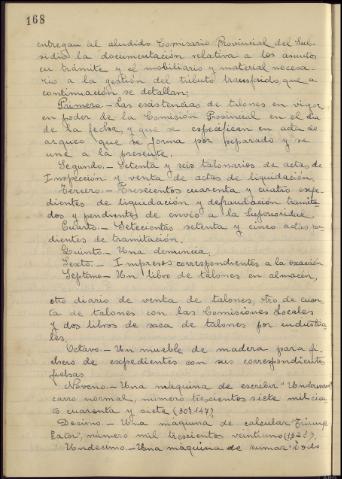 168
entregan al aludido Comisario Provincial del Sub-
sidio la documentación relativa a los asuntos
en trámite y el mobiliario y material necesa-
rio a la gestión del tributo traspasado que a
continuación se detallan:
Primero.- Las existencias de talones en vigor
en poder de la Comisión Provincial en el día
de la fecha, y que se especifican en acta de
arqueo que se forma por separado y se
une a la presente.
Segundo.- Setenta y seis talonarios de acta, de
Inspección y venta de actas de liquidación.
Tercero.- Trescientos cuarenta y cuatro expe-
dientes de liquidación y defraudación tramita-
dos y pendientes de envío a la
Cuarto.- Setecientas setenta y cinco actas
dientes de tramitación.
Quinto.- Una denuncia.
Sexto.- Impresos correspondientes a la exacción
Septimo.- Un libro de talones en almacén,
otro diario de venta de talones, otro de cuen-
ta de talones con las Comisiones Locales
y dos libros de saca de talones por industria-
les.
Octavo.- Un mueble de madera para fi-
chero de expedientes con sus correspondientes
fichas.
Noveno.- Una máquina de escribir "Underwood"
carro normal, número trescientos siete mil cien-
to cuarenta y siete (307.147)
Decimo.- Una máquina de calcular
número mil trescientos veintiuno
Undecimo.- Una máquina de sumar